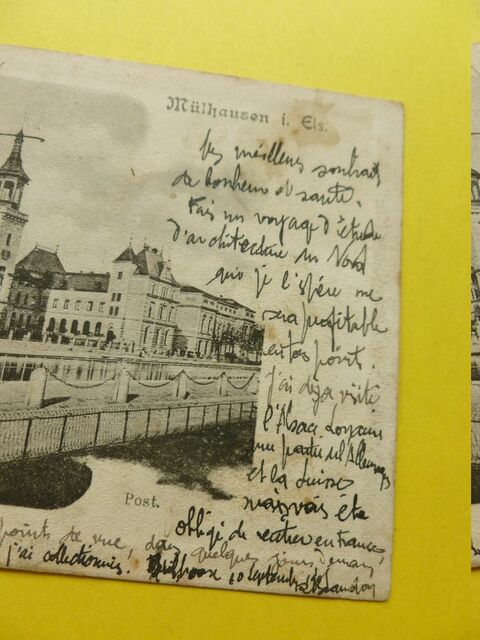 Mülhausen i. Els.
Mes meilleurs souhaits
de bonheur et santé.
Fais un voyage d'étude
d'architecture du Nord
que je l'espère me
sera profitable
points.
J'ai déjà visité
l'Alsace Lorraine
une partie de l'Allemagne
et la Suisse
mais ai été
obligé de rentrer en France,
Post.
points de vue, quelques jours
j'ai collectionnés.
10 septembre